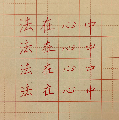 法在心中
法在心中
法在心中
法在心中